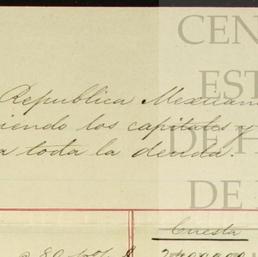 CEN
Republica Mexican
EST
iendo los capitales y
DE H
a toda la deuda.
DE
Cuesta